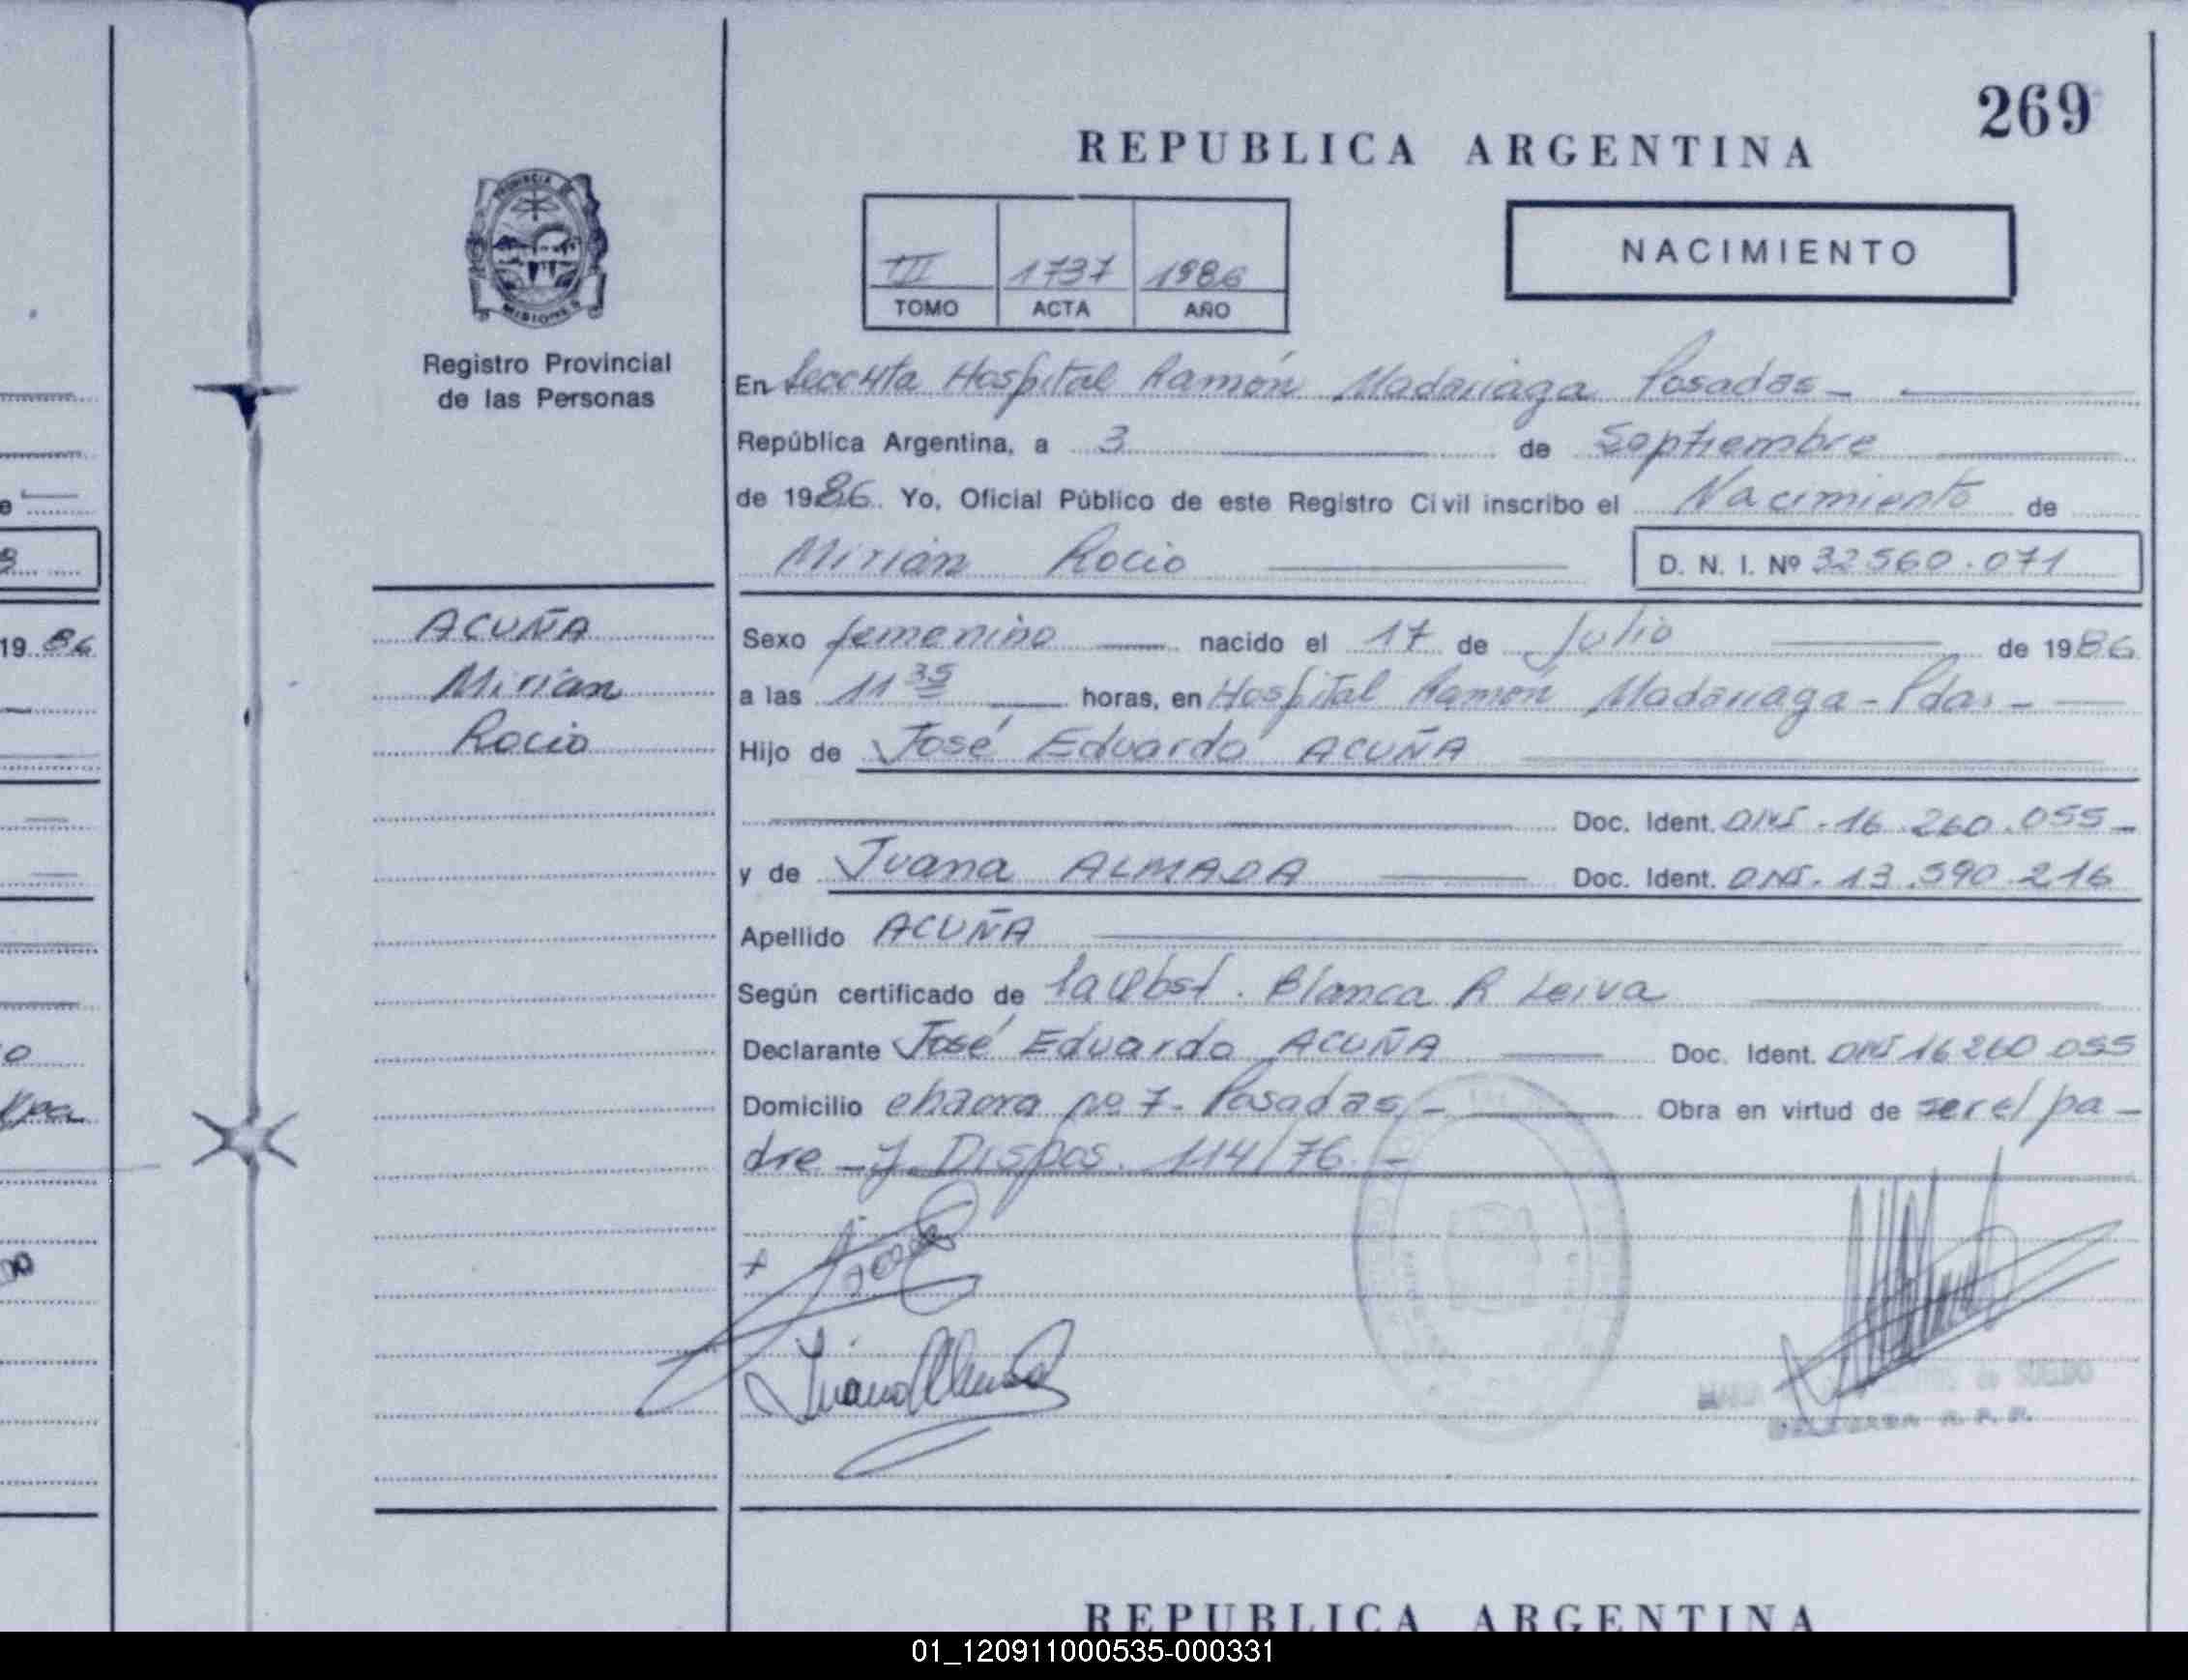 269
REPUBLICA ARGENTINA
NACIMIENTO
III 1737 1986
TOMO ACTA AÑO
PROVINCIA DE
MISIONES
Registro Provincial
de las Personas
En Secc 4ta Hospital Ramón Madariaga Posadas
República Argentina, a 3 de Septiembre
de 1986. Yo, Oficial Público de este Registro Civil inscribo el Nacimiento de
Mirian Rocio D. N. I. Nº 32560.071
ACUÑA
Mirian
Rocio
Sexo femenino nacido el 17 de Julio de 1986
a las 11 35 horas, en Hospital Ramón Madariaga - Pdas -
Hijo de José Eduardo ACUÑA
Doc. Ident. DNI. 16.260.055
y de Juana ALMADA Doc. Ident. DNI. 13.590.216
Apellido ACUÑA
Según certificado de la Obst. Blanca R Leiva
Declarante José Eduardo ACUÑA Doc. Ident. DNI 16260055
Domicilio chacra no 7. Posadas - Obra en virtud de ser el pa-
dre y Dispos. 114/76.-
Juana Almada
DELEGADA R. P. P.
REPUBLICA ARGENTINA
19 86
01_120911000535-000331